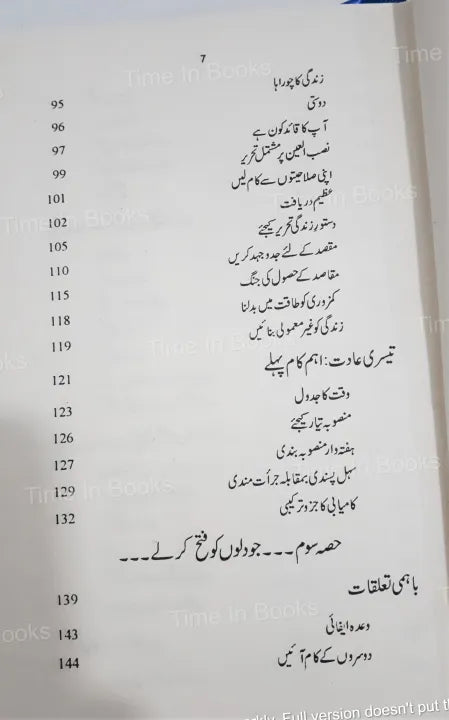 7
زندگی کا چوراہا 95
دوستی 96
آپ کا قائد کون ہے 97
نصب العین پر مشتمل تحریر 99
اپنی صلاحیتوں سے کام لیں 101
عظیم دریافت 102
دستور زندگی تحریر کیجئے 105
مقصد کے لئے جدوجہد کریں 110
مقاصد کے حصول کی جنگ 115
کمزوری کو طاقت میں بدلنا 118
زندگی کو غیر معمولی بنائیں 119
تیسری عادت: اہم کام پہلے 121
وقت کا جدول 123
منصوبہ تیار کیجئے 126
ہفتہ وار منصوبہ بندی 127
سہل پسندی بمقابلہ جرأت مندی 129
کامیابی کا جزو ترکیبی 132
حصہ سوم ۔۔۔ جو دلوں کو فتح کر لے ۔۔۔
باہمی تعلقات 139
وعدہ ایفائی 143
دوسروں کے کام آئیں 144
Time In Books
Full version doesn't put t